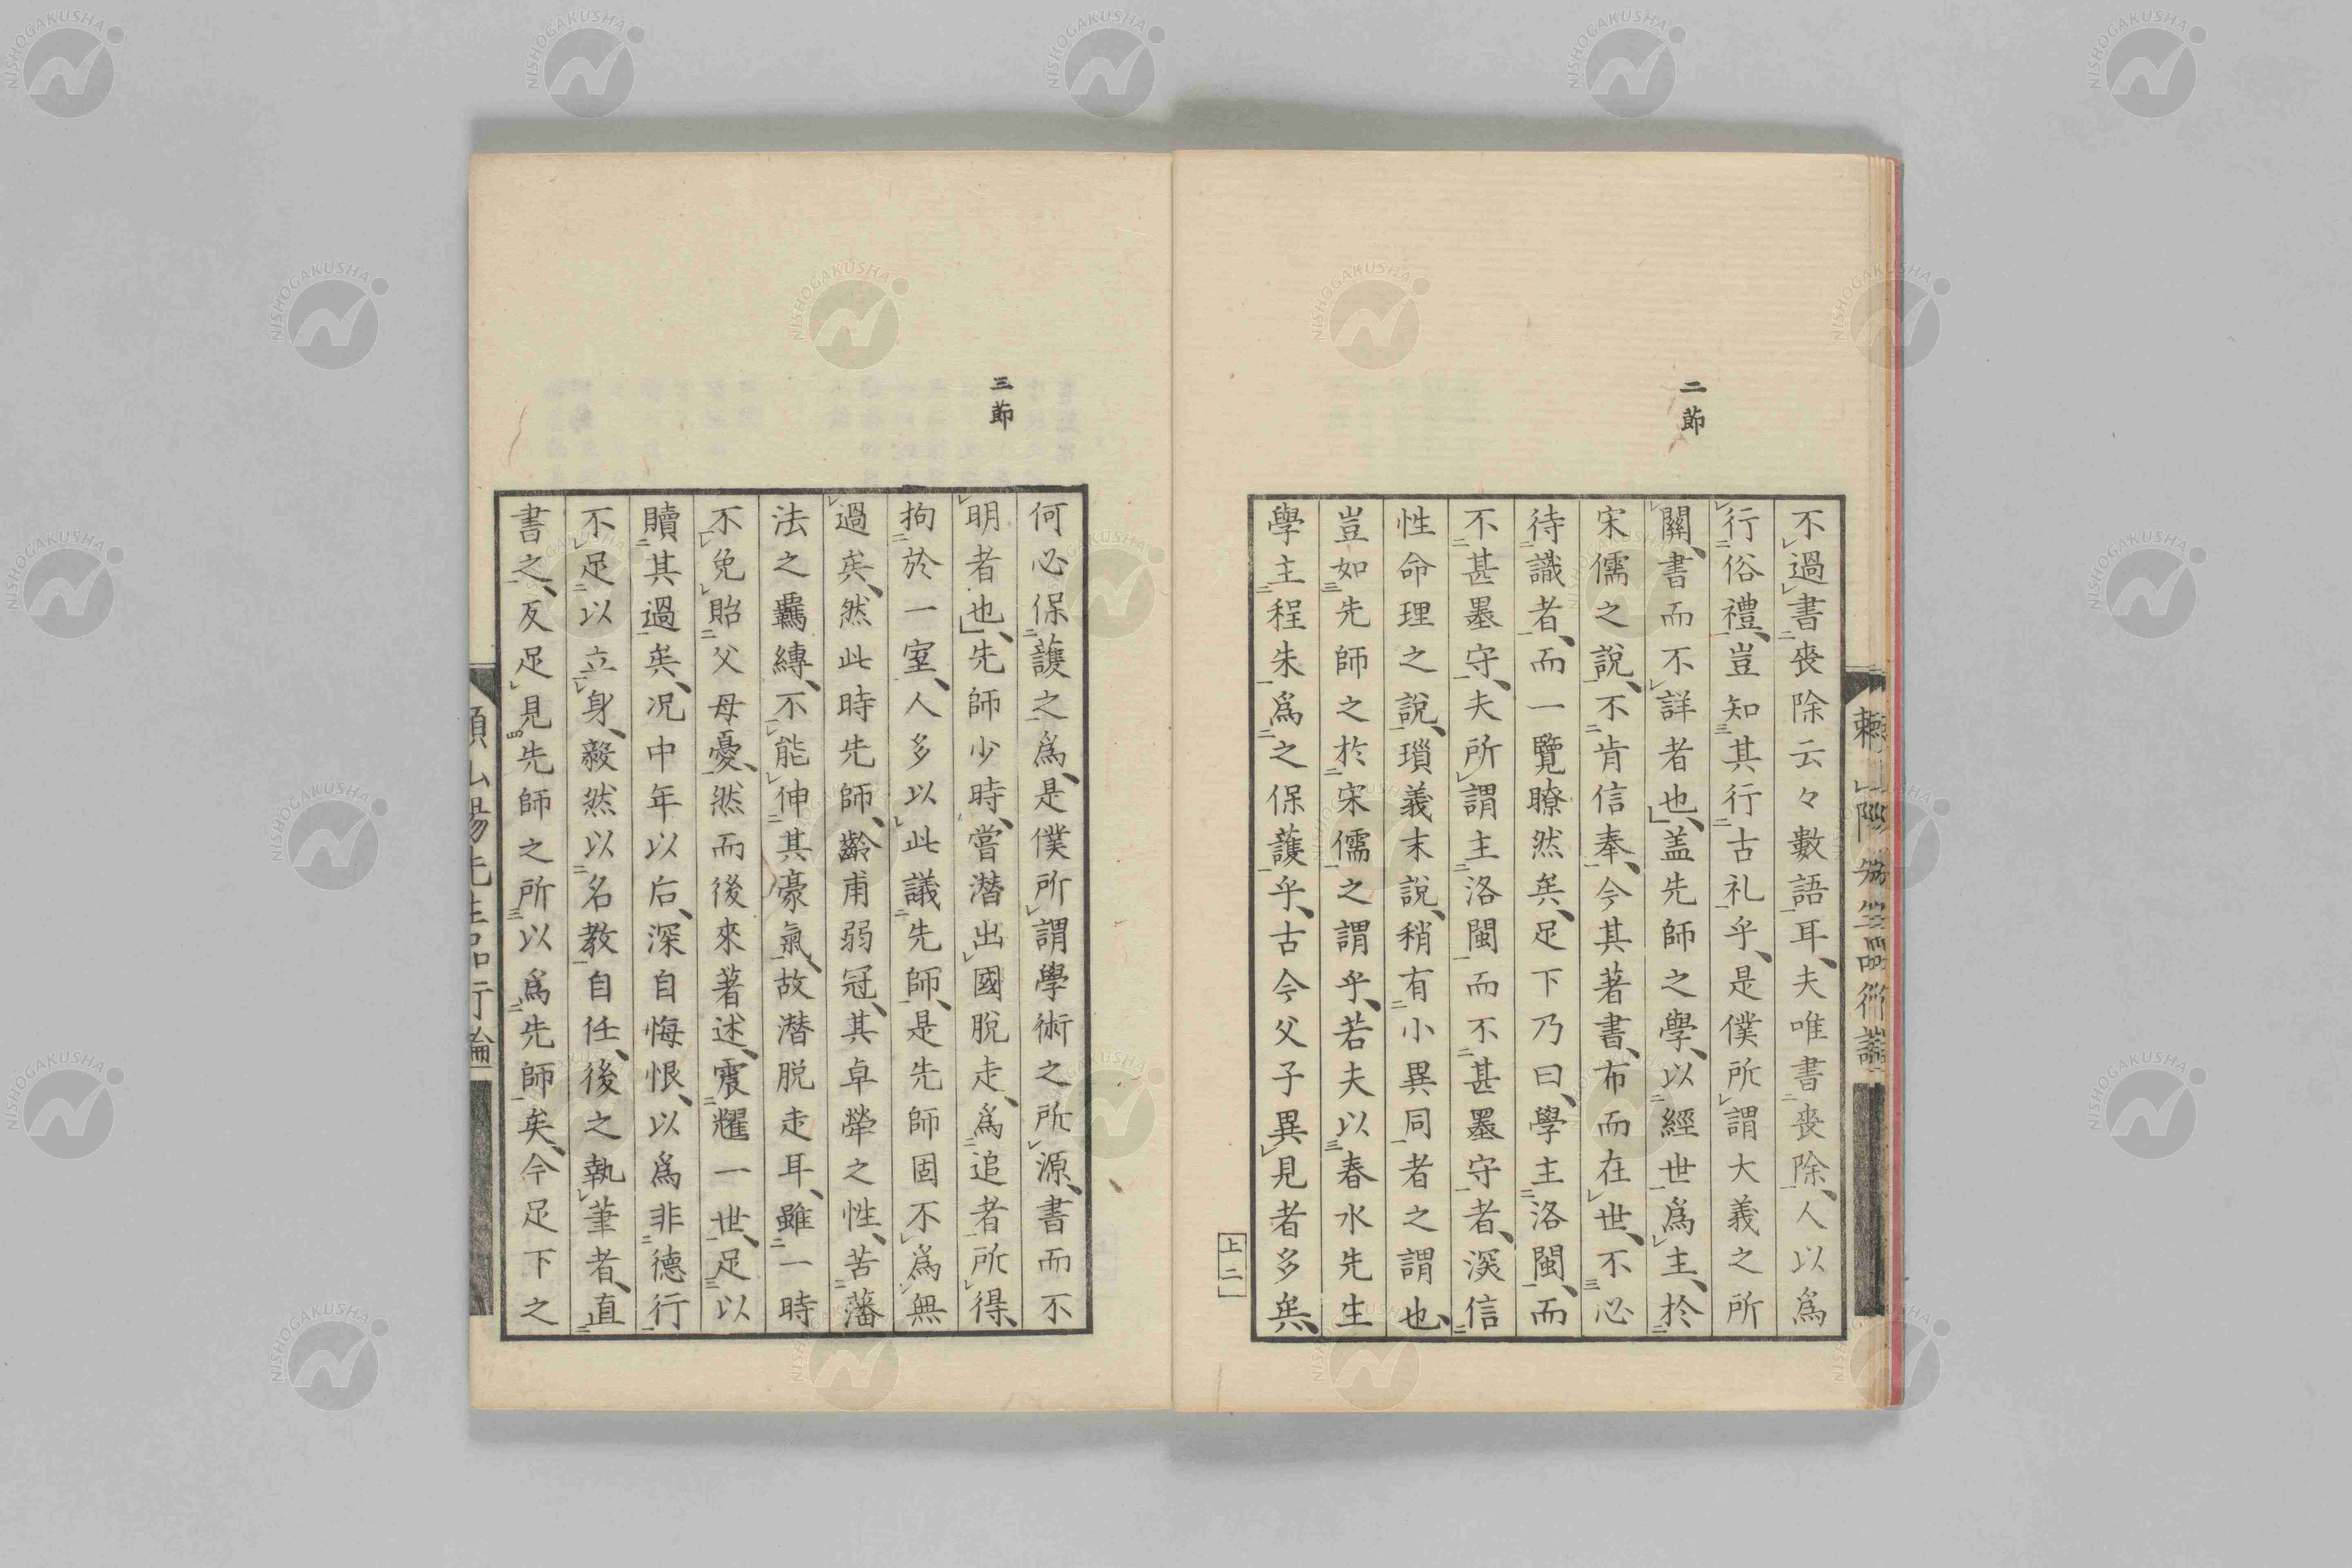 二節
不過書喪除云々數語耳、夫唯書喪除、人以爲
行俗禮、豈知其行古礼乎、是僕所謂大義之所
關、書而不詳者也、盖先師之學、以經世爲主、於
宋儒之說、不肯信奉、今其著書、布而在世、不必
待識者、而一覽瞭然矣、足下乃曰、學主洛閩、而
不甚墨守、夫所謂主洛閩而不甚墨守者、深信
性命理之說、瑣義末說、稍有小異同者之謂也、
豈如先師之於宋儒之謂乎、若夫以春水先生
學主程朱爲之保護乎、古今父子異見者多矣、
上二
三節
何必保護之爲、是僕所謂學術之所源、書而不
明者也、先師少時、嘗潛出國脫走、爲追者所得、
拘於一室、人多以此議先師、是先師固不爲無
過矣、然此時先師、齡甫弱冠、其卓犖之性、苦藩
法之羈縛、不能伸其豪氣、故潛脱走耳、雖一時
不免貽父母憂、然而後來著述、震耀一世、足以
贖其過矣、况中年以后、深自悔恨、以爲非德行
不足以立身、毅然以名教自任、後之執筆者、直
書之、反足見先師之所以爲先師矣、今足下之
頼山陽先生品行論
NISHOGAKUSHA